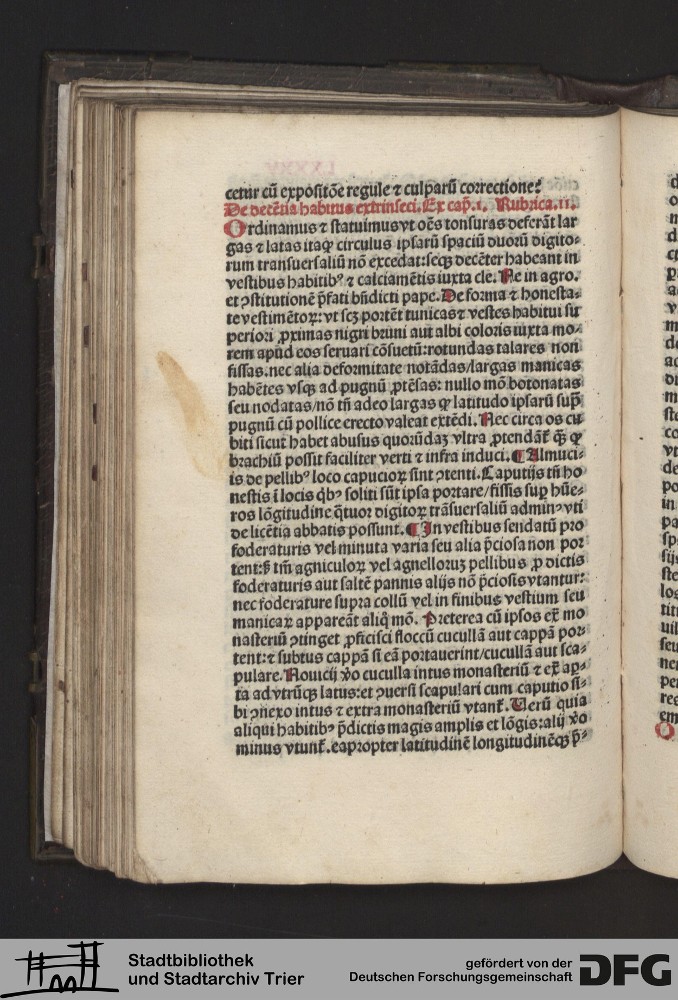 cetur cū expositōe regule ⁊ culparū correctione.
De decētia habitus extrinseci. Ex cap̄. i. Rubrica. ii.
Ordinamus ⁊ statuimus vt oēs tonsuras deferāt lar
gas ⁊ latas itaq̄ circulus ipsarū spaciū duorū digito⸗
rum transuersaliū nō excedat: seq̄ decēter habeant in
vestibus habitibꝰ ⁊ calciamētis iuxta cle. Ne in agro.
et ꝯstitutionē p̄fati bn̄dicti pape. De forma ⁊ honesta⸗
te vestimētoꝝ: vt scꝫ portēt tunicas ⁊ vestes habitui su
periori ꝓximas nigri bruni aut albi coloris iuxta mo⸗
rem apud eos seruari cōsuetū: rotundas talares non
fissas. nec alia deformitate notādas/largas manicas
habētes vsq̄ ad pugnū ꝓtēsas: nullo mō botonatas
seu nodatas/nō tn̄ adeo largas ꝙ latitudo ipsarū sup̄
pugnū cū pollice erecto valeat extēdi. Nec circa os cu
biti sicut habet abusus quorūdaꝫ vltra ꝓtendāt̄ q̄ꝫ ꝙ
brachiū possit faciliter verti ⁊ infra induci. ¶ Almuci⸗
is de pellibꝰ loco capucioꝝ sint ꝯtenti. Caputijs tn̄ ho
nestis ī locis q̇bꝰ soliti sūt ipsa portare/fissis suꝑ hūe⸗
ros lōgitudine q̄tuor digitoꝝ trāsuersaliū adminꝰ vti
de licētia abbatis possunt. ¶ In vestibus sendatū pro
foderaturis vel minuta varia seu alia p̄ciosa non por
tent: s̄ tm̄ agniculoꝝ vel agnelloruꝫ pellibus ꝓ dictis
foderaturis aut saltē pannis alijs nō p̄ciosis vtantur:
nec foderature supra collū vel in finibus vestium seu
manicaꝝ appareāt aliq̊ mō. Preterea cū ipsos ex̄ mo
nasteriū ꝯtinget ꝓficisci floccū cucullā aut cappā por⸗
tent: ⁊ subtus cappā si eā portauerint/cucullā aut sca⸗
pulare. Nouicij v̊o cuculla intus monasteriū ⁊ ex̄ ap̱⸗
ta ad vtrūq̄ latus: et ꝯuersi scapulari cum caputio si⸗
bi ꝯnexo intus ⁊ extra monasteriū vtant̄. Uerū quia
aliqui habitibꝰ p̄dictis magis amplis et lōgis: alij v̊o
minus vtunt̄. eapropter latitudinē longitudinēq̄ p̄⸗
Stadtbibliothek
und Stadtarchiv Trier
gefördert von der
Deutschen Forschungsgemeinschaft
DFG